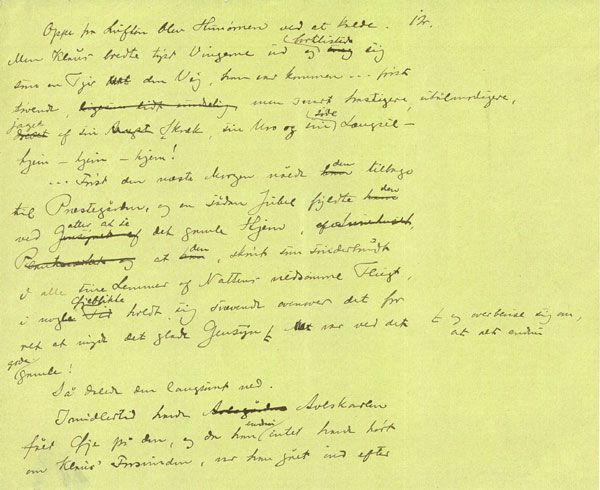 Oppe fra Luften blev Himmen ved at kalde. 12.
Men Klaus bredte tyst Vingerne ud og listede sig
som en Tyv den Vej, han var kommen ... først
tøvende, men snart hastigere, utaalmodigere,
jaget af sin Skræk, sin Uro og sin Længsel –
hjem – hjem – hjem!
... Først den næste Morgen naaede den tilbage
til Præstegården, og en sådan Jubel fyldte den
ved atter at se det gamle Hjem,
at den, skønt sønderbrudt
i alle sine Lemmer af Nattens voldsomme Flugt,
i nogle Øjeblikke holdt sig svævende ovenover det for
ret at nyde det glade Gensyn og overbevise sig om,
at alt endnu var ved det
gode gamle!
Så dalede den langsomt ned.
Imidlertid havde Avlskarlen
fået Øje på den, og da han endnu intet havde hørt
om Klaus' Forsvinden, var han gået ind efter